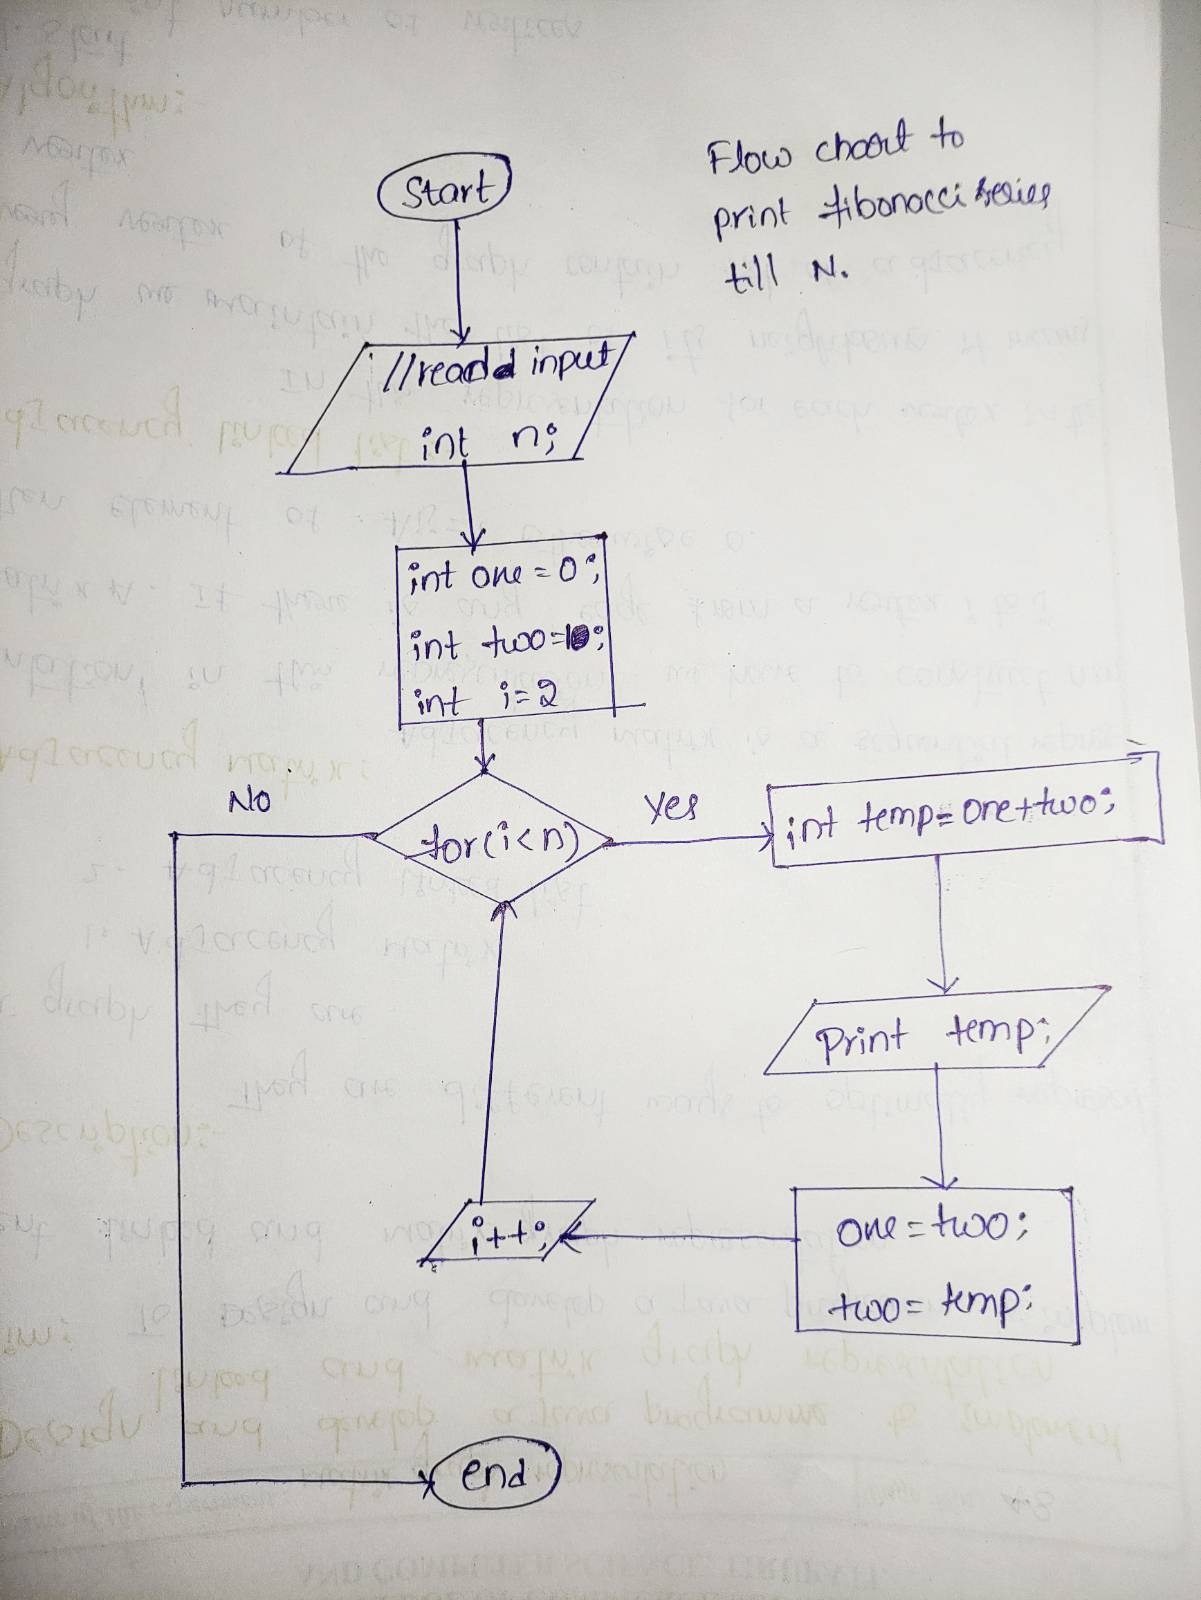 Flow chart to
print fibonacci series
till N.
Start
//read input
int n;
int one = 0;
int two = 1;
int i = 2
for(i<n)
No
Yes
int temp = one + two;
Print temp;
one = two;
two = temp;
i++;
end